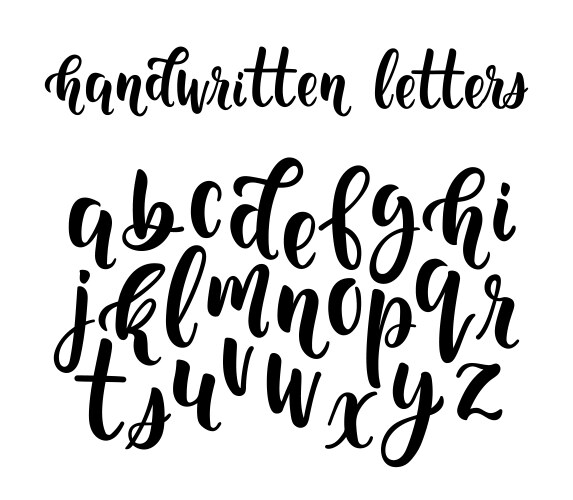 handwritten letters
a b c d e f g h i
j k l m n o p q r
t s u v w x y z